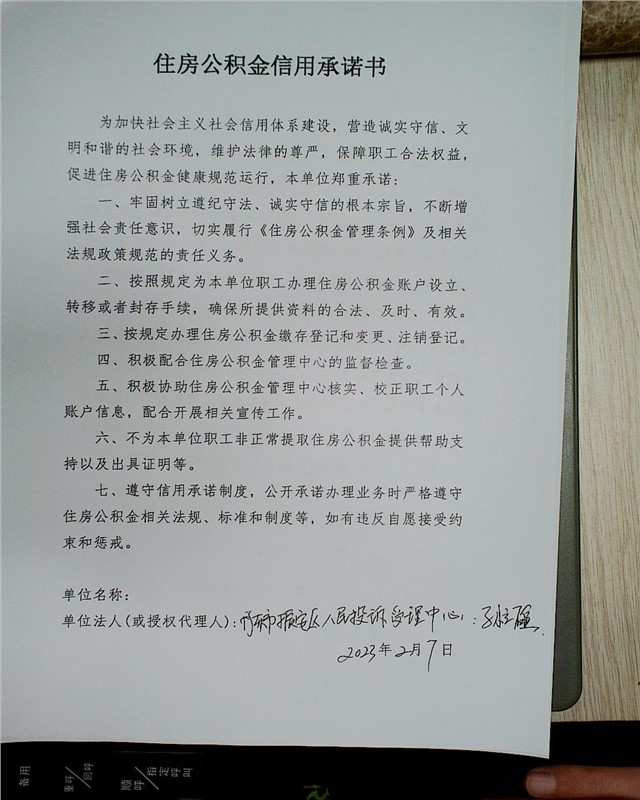 住房公积金信用承诺书
为加快社会主义社会信用体系建设，营造诚实守信、文
明和谐的社会环境，维护法律的尊严，保障职工合法权益，
促进住房公积金健康规范运行，本单位郑重承诺：
一、牢固树立遵纪守法、诚实守信的根本宗旨，不断增
强社会责任意识，切实履行《住房公积金管理条例》及相关
法规政策规范的责任义务。
二、按照规定为本单位职工办理住房公积金账户设立、
转移或者封存手续，确保所提供资料的合法、及时、有效。
三、按规定办理住房公积金缴存登记和变更、注销登记。
四、积极配合住房公积金管理中心的监督检查。
五、积极协助住房公积金管理中心核实、校正职工个人
账户信息，配合开展相关宣传工作。
六、不为本单位职工非正常提取住房公积金提供帮助支
持以及出具证明等。
七、遵守信用承诺制度，公开承诺办理业务时严格遵守
住房公积金相关法规、标准和制度等，如有违反自愿接受约
束和惩戒。
单位名称：
单位法人(或授权代理人)：人民投诉受理中心：
2023年2月7日
备用
重呼/回呼
顺呼/指定呼叫